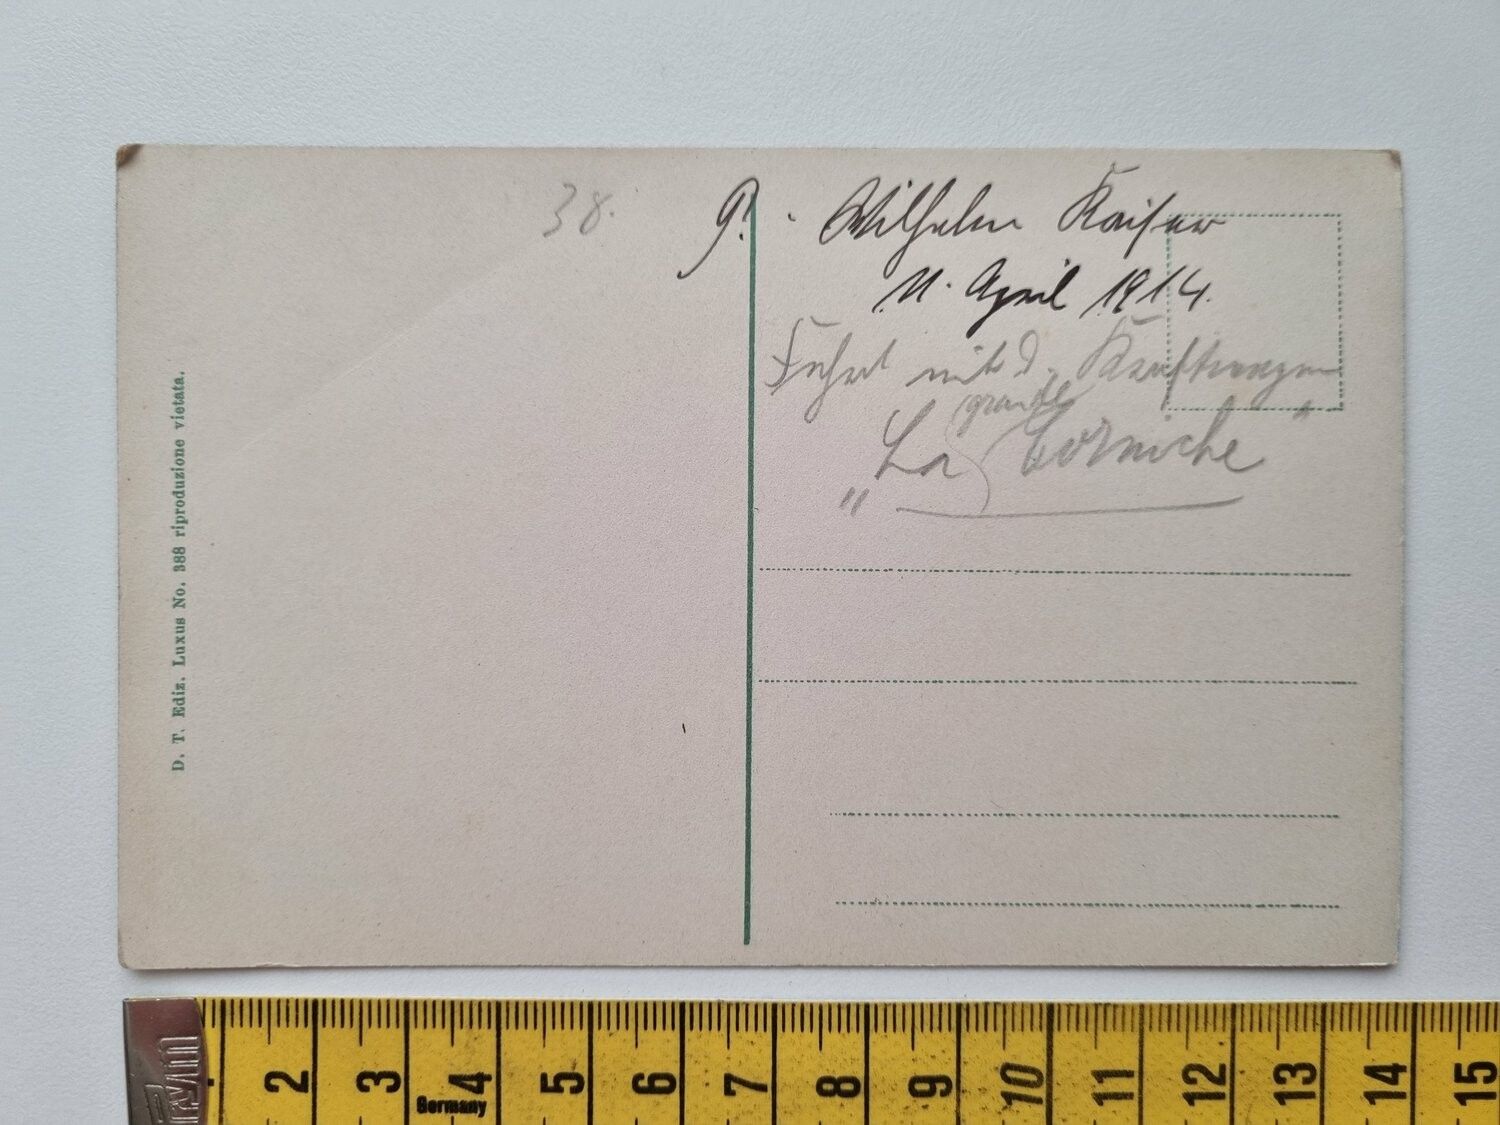 38.
P. Wilhelm Kaiser
11. April 1914.
Fahrt mit d. Kraftwagen
grande
„La Corniche"
D. T. Ediz. Luxus No. 388 riproduzione vietata.
2 3 4 5 6 7 8 9 10 11 12 13 14 15
Germany